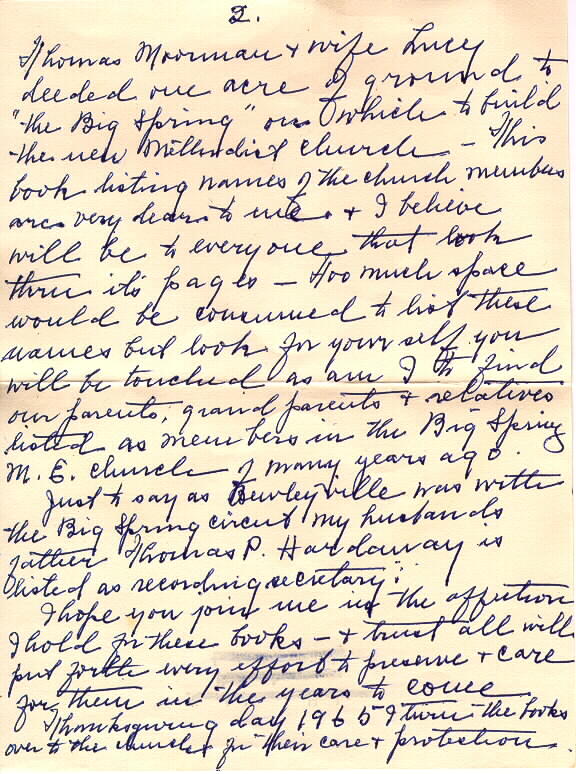 2.
Thomas Moorman & wife Lucy
deeded one acre of ground to
"the Big Spring" on which to build
the new Methodist church – This
book listing names of the church members
are very dear to me. & I believe
will be to everyone that look
thru it's pages – Too much space
would be consumed to list these
names but look for your self you
will be touched as am I to find
our parents, grand parents & relatives
listed as members in the Big Spring
M. E. church of many years ago.
Just to say as Bewleyville was with
the Big Spring circuit my husbands
father Thomas P. Hardaway is
listed as recording secretary.
I hope you join me in the affection
I hold for these books – & trust all will
put forth every effort to preserve & care
for them in the years to come
Thanksgiving day 1965 I turn the books
over to the church for their care & protection.